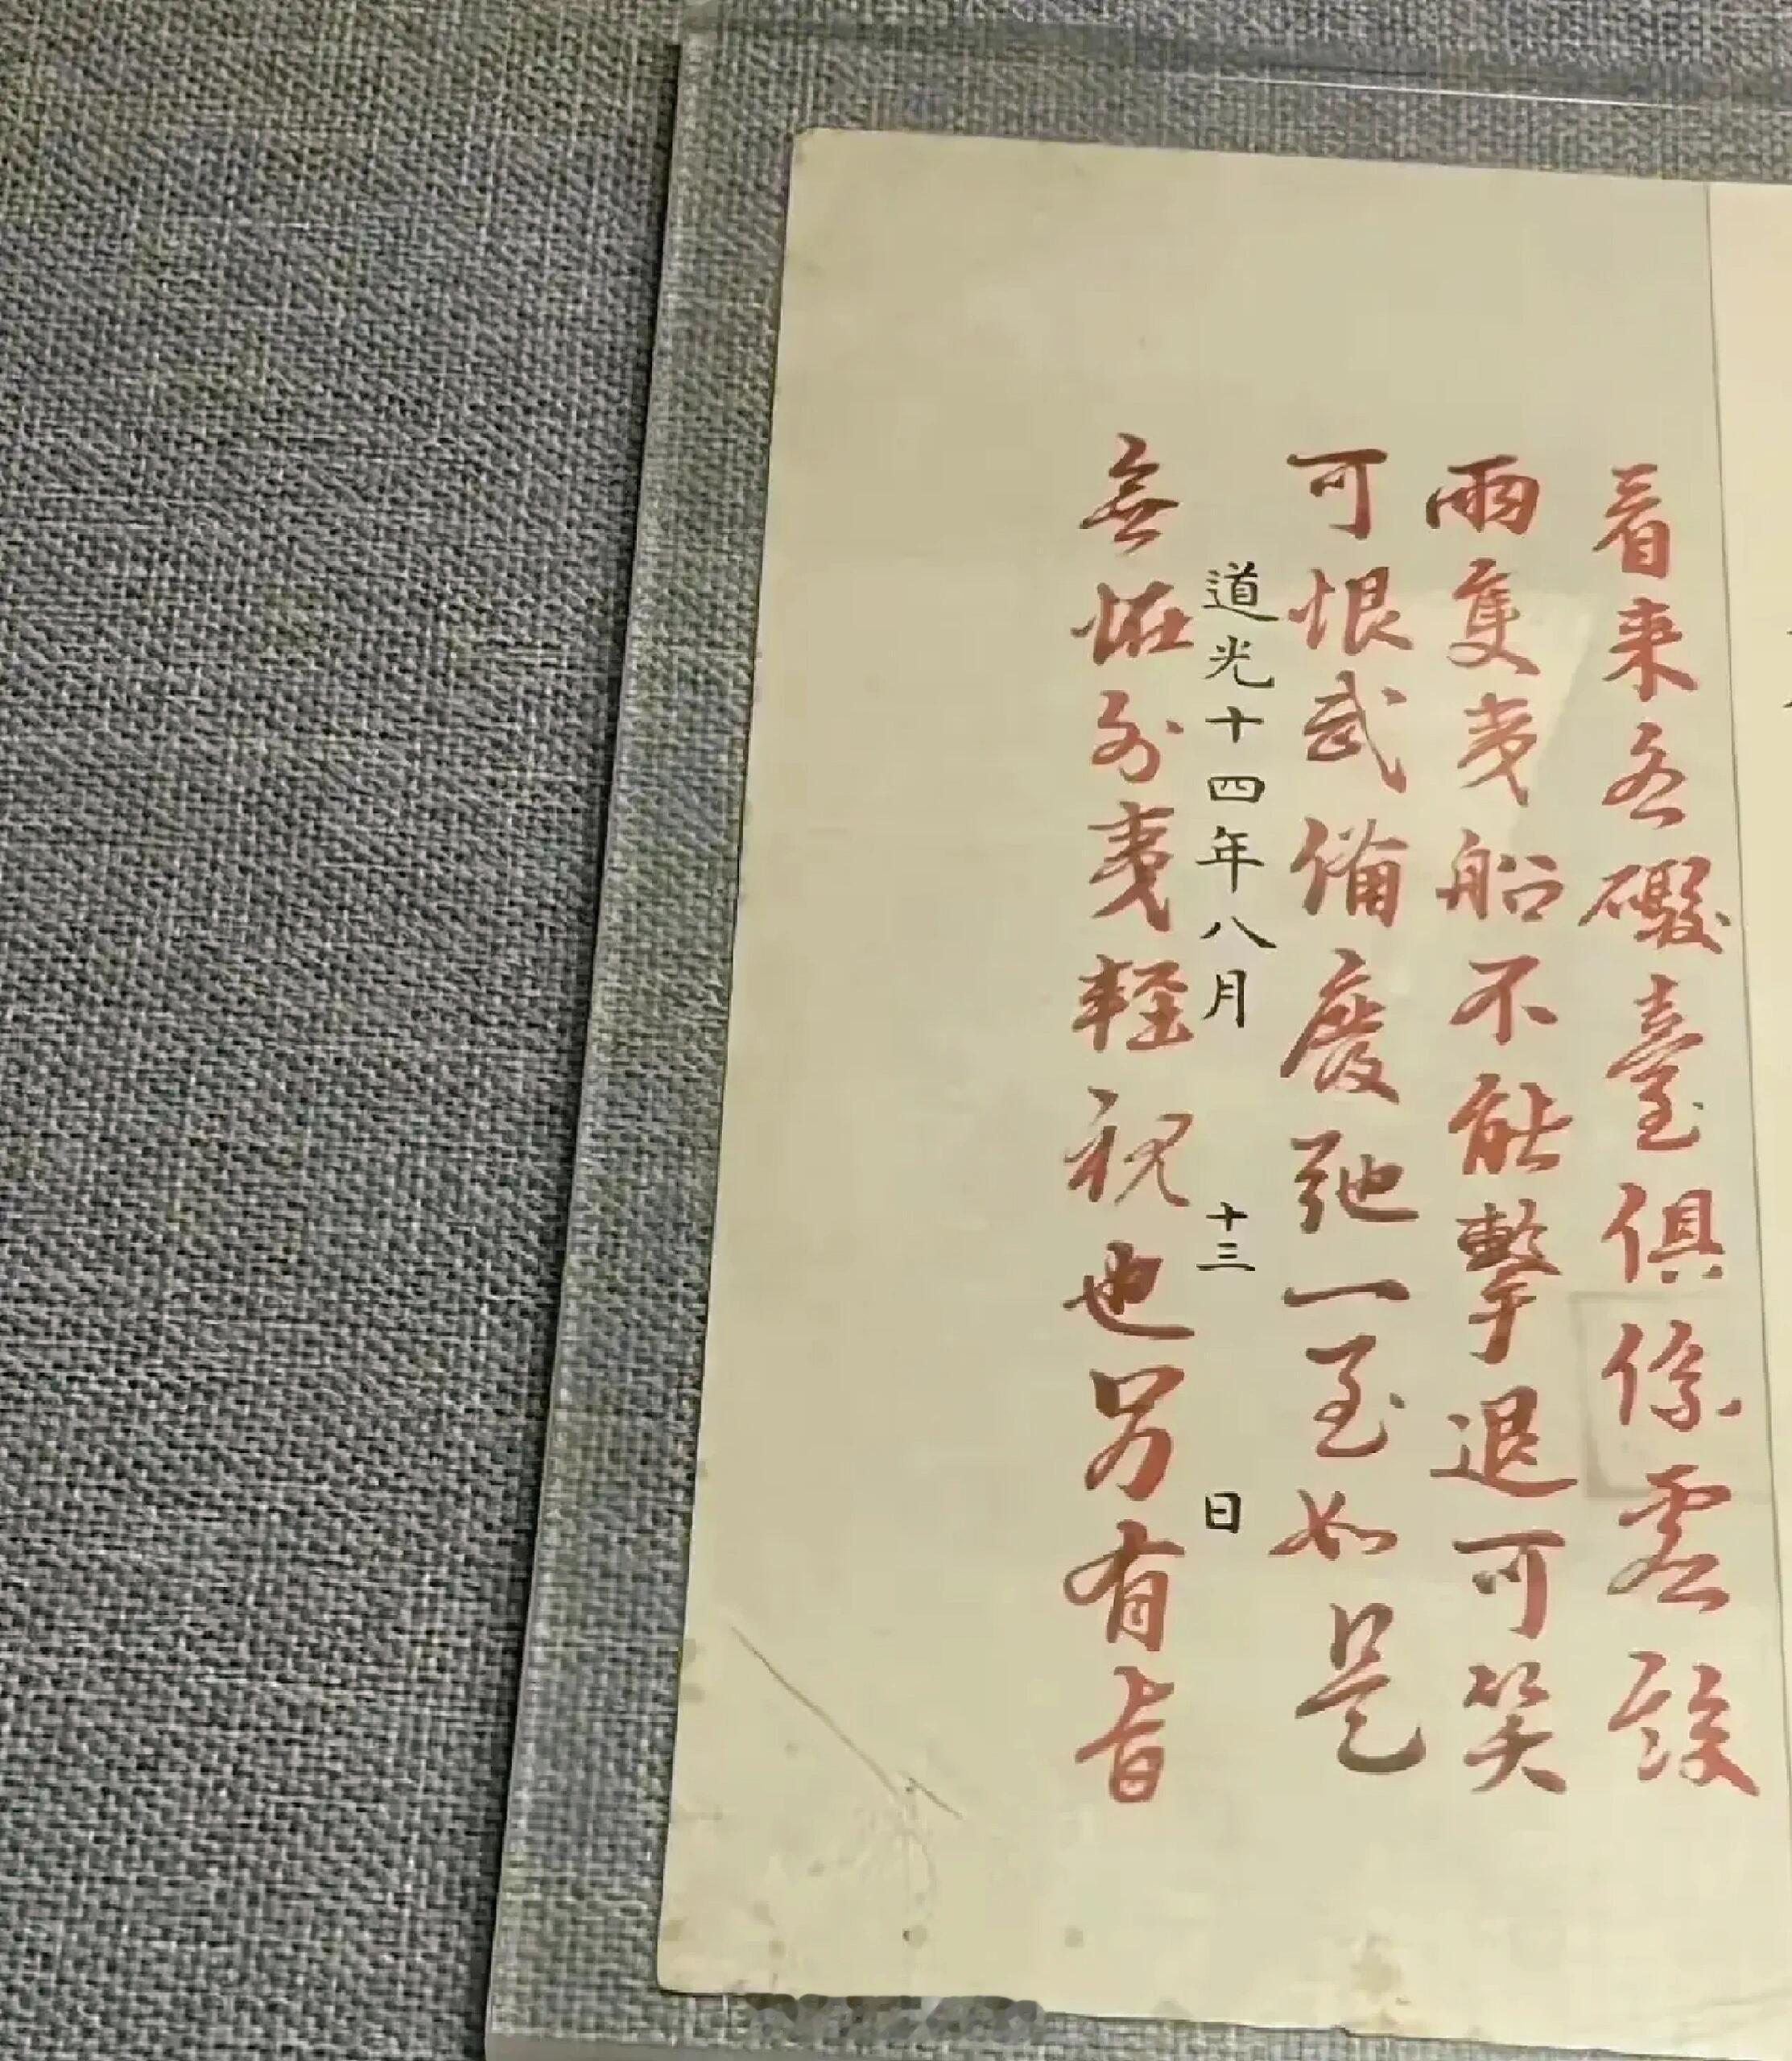 看来各礮臺俱係虚設
兩隻夷船不能擊退可笑
可恨武備廢弛一至如是
道光十四年八月十三日
無怪外夷輕視也另有旨